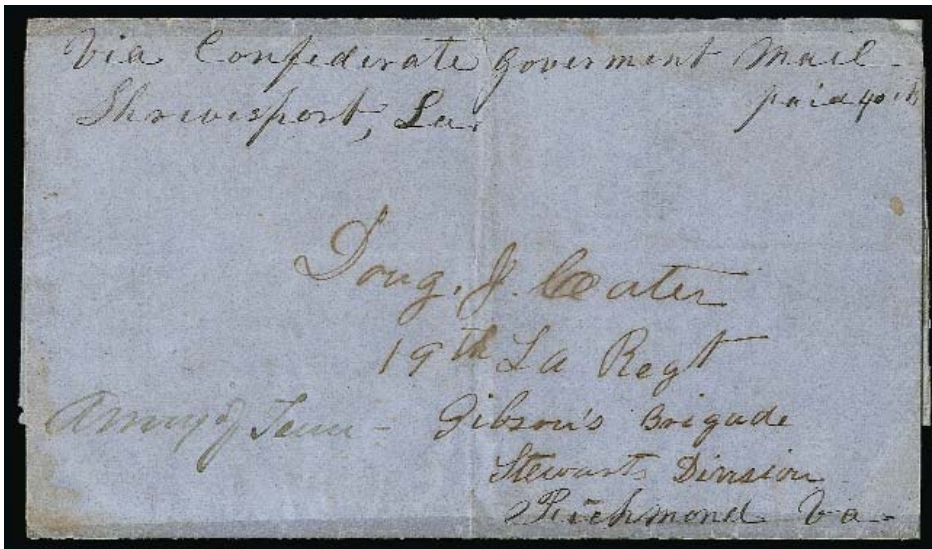 Via Confederate Goverment Mail -
paid 40 cts
Shrevesport, La.
Doug. J. Cater
19th La Regt
Army of Tenn - Gibson's Brigade
Stewarts Division
Richmond Va -